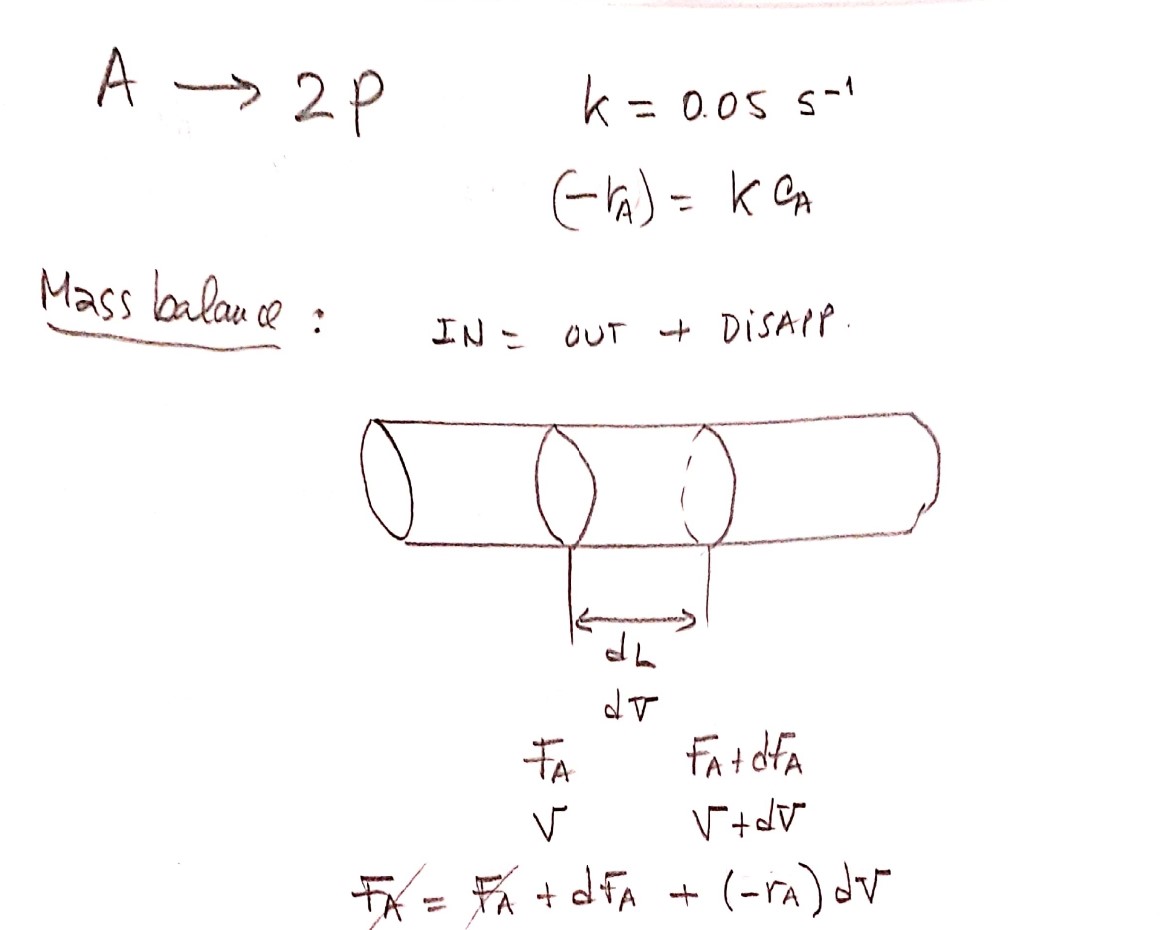 A → 2P
k = 0.05 s⁻¹
(-rA) = k CA
Mass balance :
IN = OUT + DiSAPP.
dL
dV
FA FA + dFA
V V + dV
FA = FA + dFA + (-rA) dV